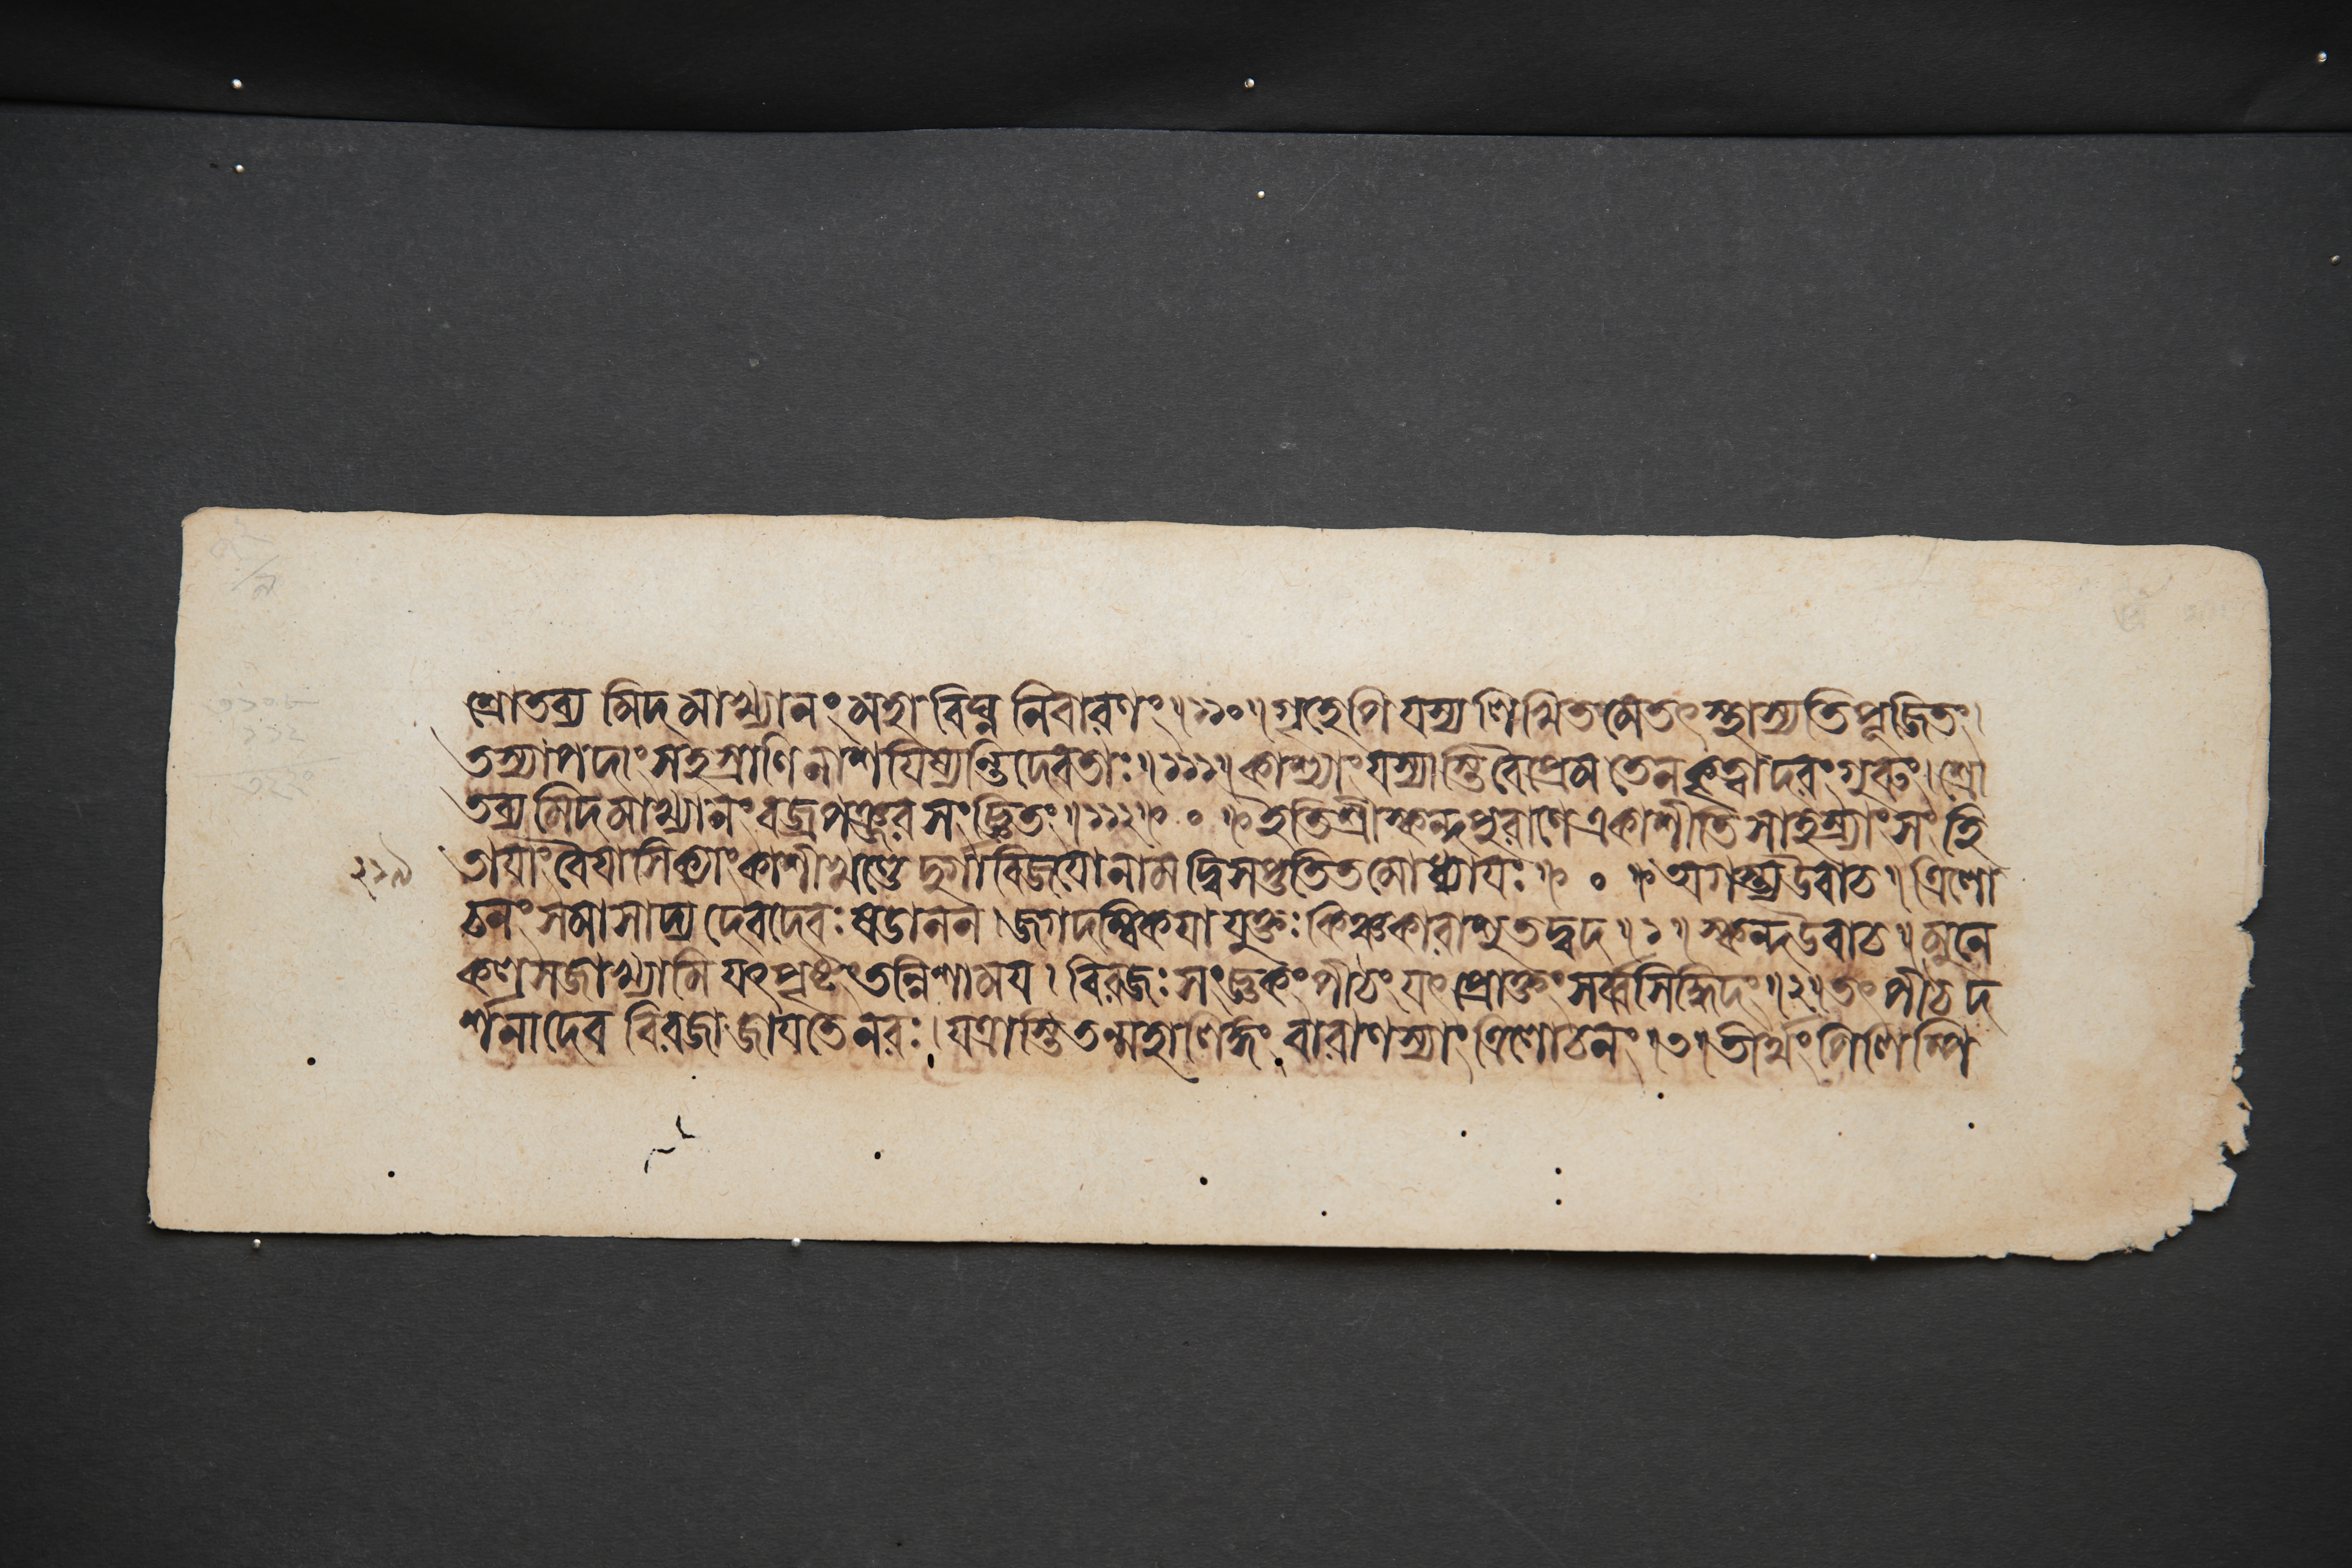 শ্রোতব্য মিদমাখ্যানং মহাবিঘ্ন নিবারণং॥১১০॥গৃহেপি যস্য লিখিত মেতৎ স্থাস্যতি পূজিতং।
তস্যাপদাং সহস্রাণি নাশযিষ্যন্তি দেবতাঃ॥১১১॥কাশ্যাং যস্যাস্তি বৈ প্রেম তেন কৃত্বাদরং গুরুং।শ্রো
তব্য মিদমাখ্যানং বজ্রপঞ্জর সংজ্ঞিতং॥১১২॥ ০ ॥ইতি শ্রীস্কন্দপুরাণে একাশীতি সাহস্র্যাং সংহি
তাযাং বৈযাসিক্যাং কাশীখণ্ডে দুর্গাবিজযোনাম দ্বিসপ্ততিতমোধ্যাযঃ॥ ০ ॥অগস্ত্য উবাচ॥ত্রিলো
চনং সমাসাদ্য দেবদেবঃ ষডানন।জগদম্বিকযা যুক্তঃ কিঞ্চকারাশু তদ্বদ॥১॥স্কন্দ উবাচ॥মুনে
কলসজাখ্যামি যৎপৃষ্টং তন্নিশাময।বিরজঃ সংজ্ঞকং পীঠং যৎ প্রোক্তং সর্ব্বসিদ্ধিদং॥২॥তৎ পীঠ দ
র্শনাদেব বিরজা জাযতে নরঃ।যত্রাস্তি তন্মহালিঙ্গং বারাণস্যাং ত্রিলোচনং॥৩॥তীর্থং পিলিপ্পি
২১৯